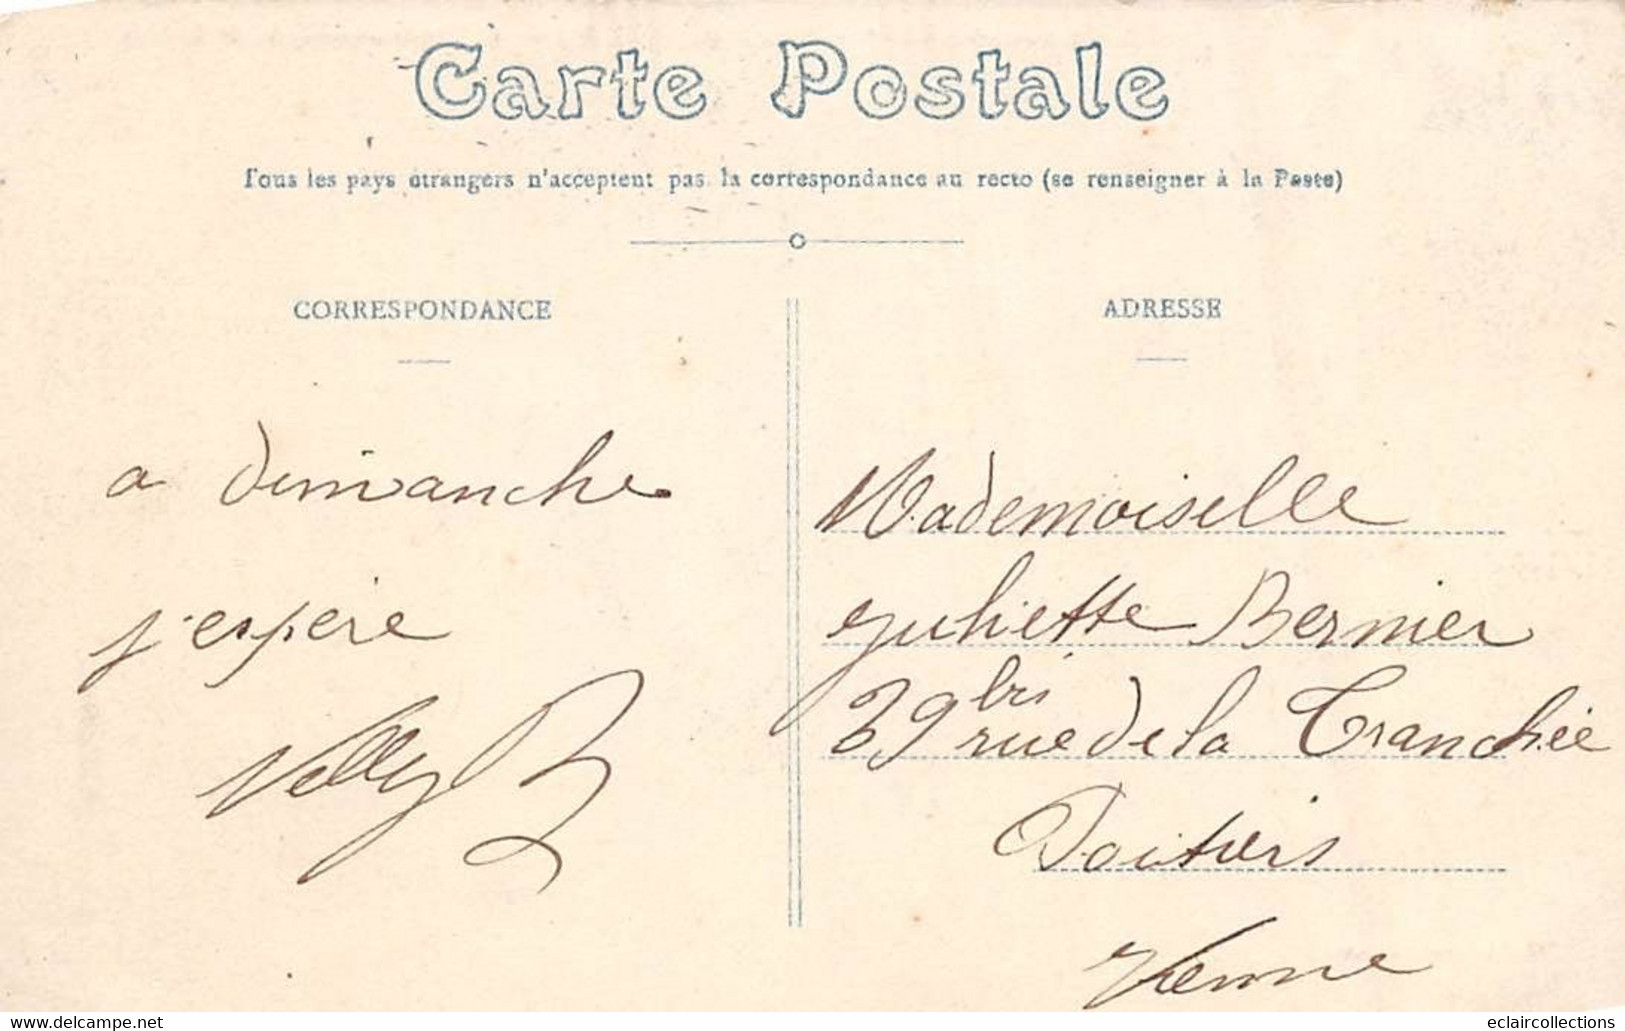 Carte Postale
Tous les pays étrangers n'acceptent pas la correspondance au recto (se renseigner à la Poste)
CORRESPONDANCE
a dimanche
j'espère
Nelly B
ADRESSE
Mademoiselle
Juliette Bernier
39 bis rue de la Tranchée
Poitiers
Vienne
www.delcampe.net
eclaircollections